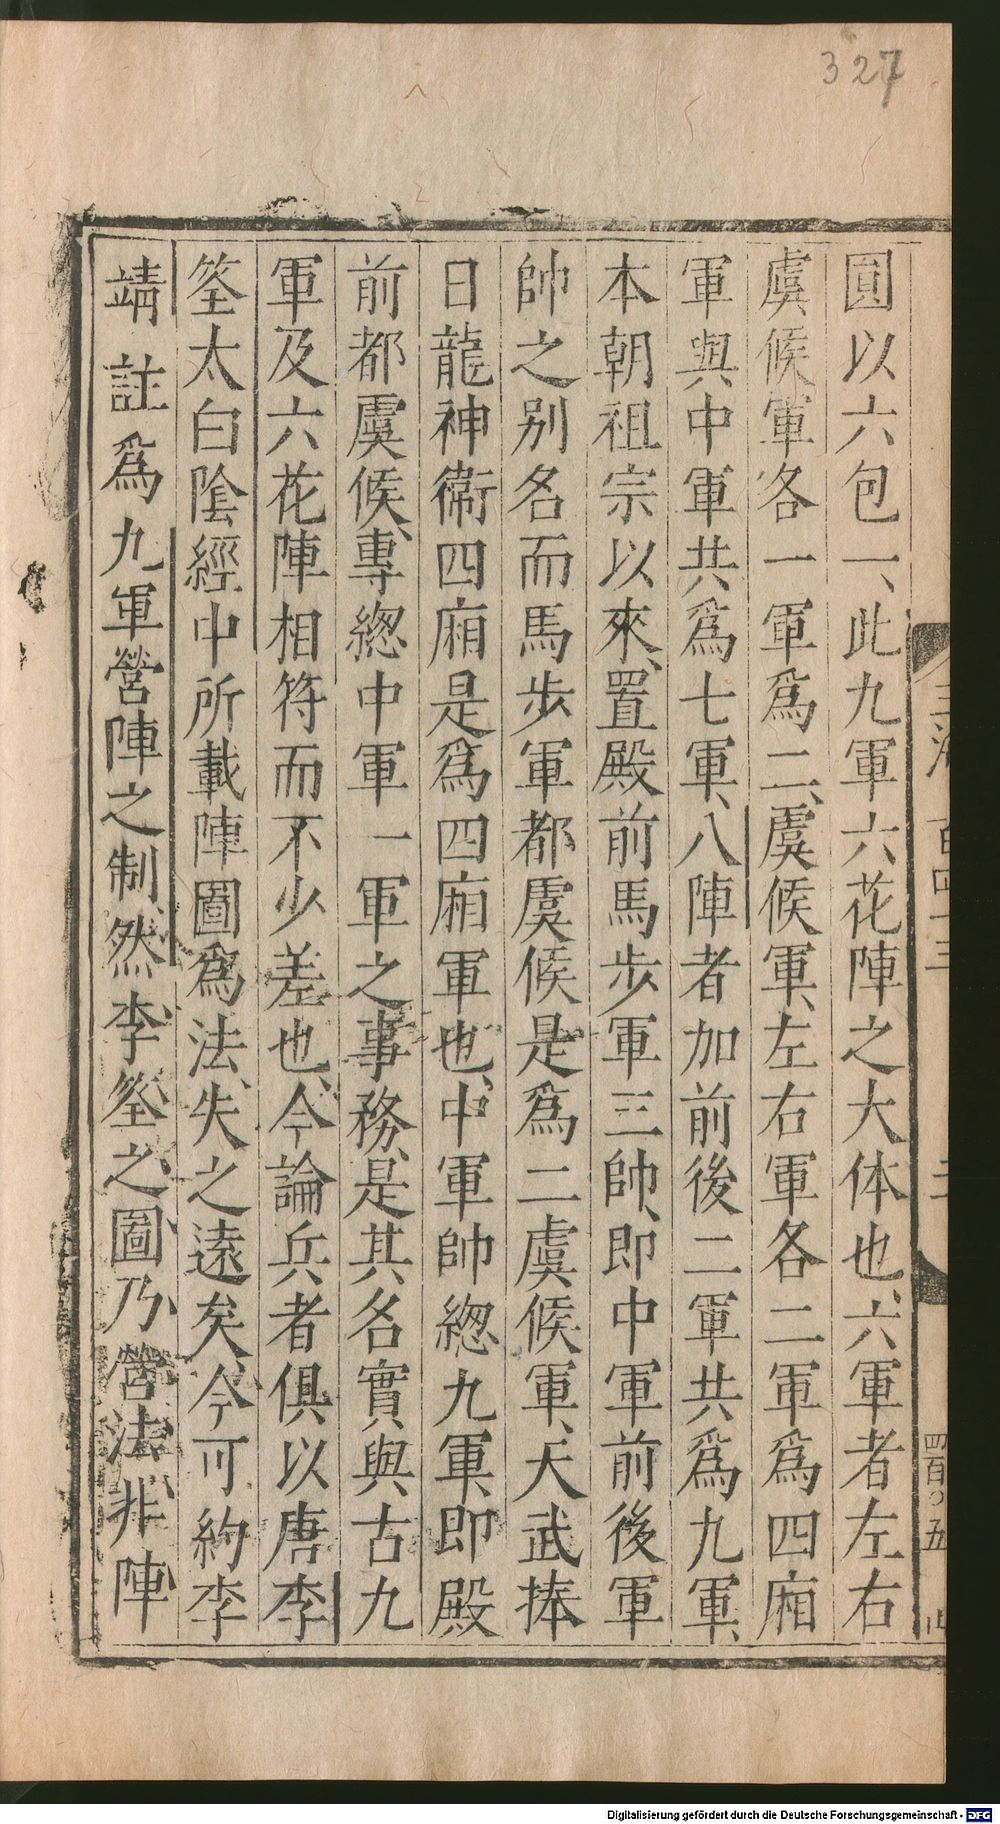 327
圓以六包一、此九軍六花陣之大体也、六軍者左右
虞候軍各一軍爲二、虞候軍、左右軍各二軍爲四廂
軍與中軍共爲七軍、八陣者加前後二軍共爲九軍、
本朝祖宗以來、置殿前馬步軍三帥、即中軍前後軍
帥之别名而馬步軍都虞候是爲二虞候軍、天武捧
日龍神衛四廂是爲四廂軍也、中軍帥總九軍即殿
前都虞候、專總中軍一軍之事務、是其名實與古九
軍及六花陣相符而不少差也、今論兵者俱以唐李
筌太白陰經中所載陣圖爲法、失之遠矣今可約李
靖註爲九軍營陣之制、然李筌之圖乃營法非陣
百四十三
四百〇五
Digitalisierung gefördert durch die Deutsche Forschungsgemeinschaft - DFG